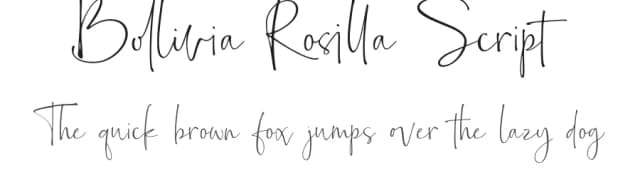 Bollivia Rosilla Script
The quick brown fox jumps over the lazy dog